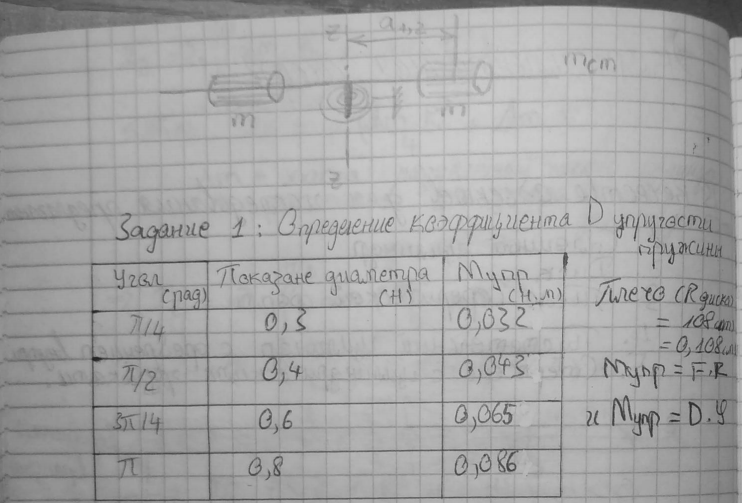 z a₁,₂
mст
m m
z
Задание 1: Определение коэффициента D упругости
пружины
Угол (рад) Показане диаметра (Н) Mупр (Н.м)
π/4 0,3 0,032
π/2 0,4 0,043
3π/4 0,6 0,065
π 0,8 0,086
Плечо (Rдиска)
= 108мм
= 0,108м
Mупр = F.R
и Mупр = D.φ